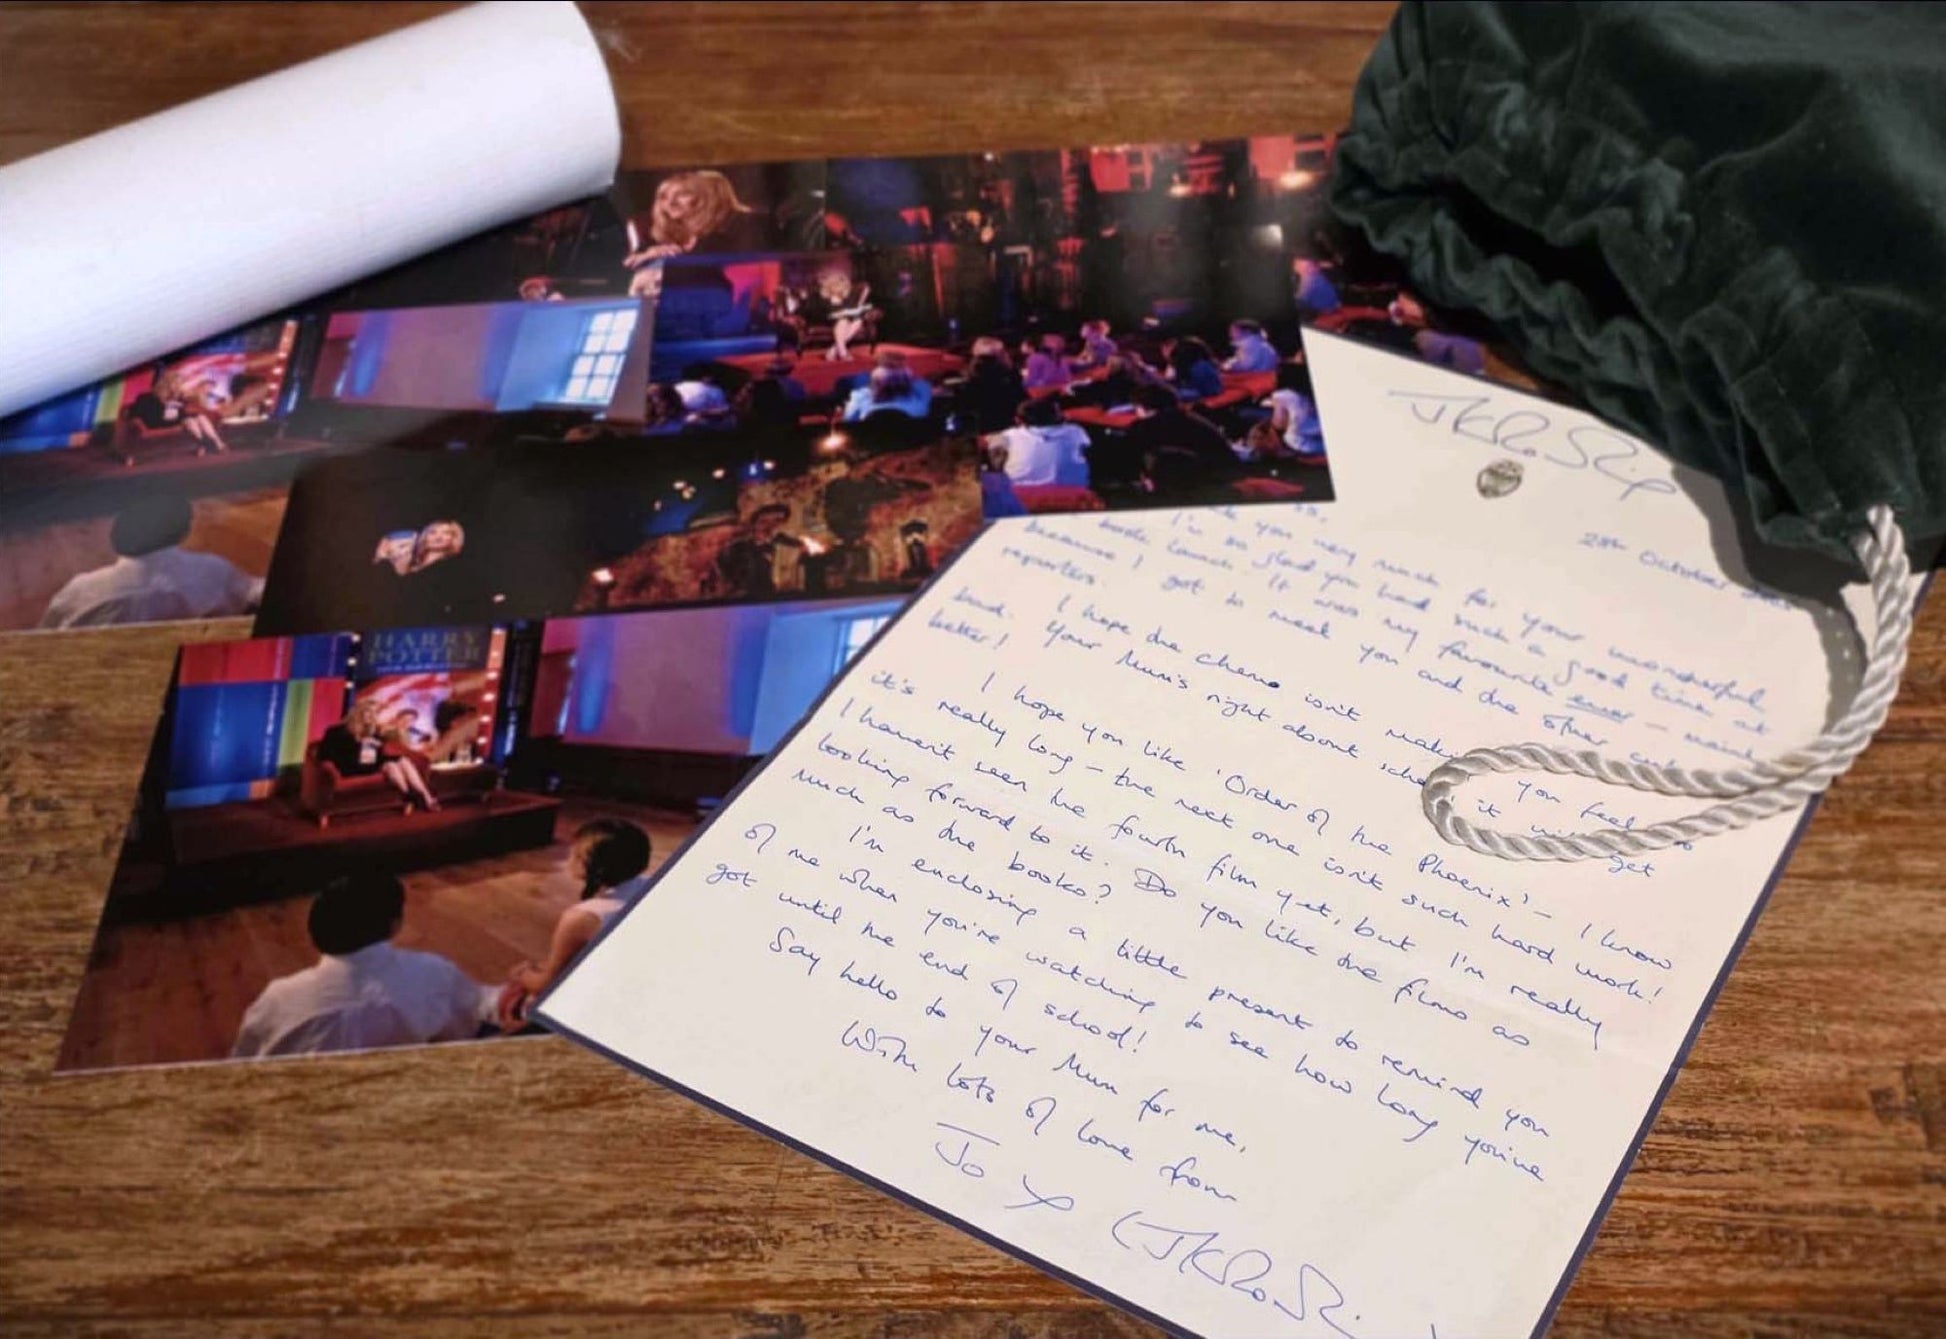 HARRY
POTTER
JKRowling
28th October
you very much for your wonderful
I'm so glad you had such a good time at
book launch. It was my favourite ever – maink
because I got to meet you and the other cub
reporters.
I hope the chemo isn't maki you feel
bad. Your Mum's right about scho it wi get
better!
I hope you like 'Order of the Phoenix' – I know
it's really long – the next one isn't such hard work!
I haven't seen the fourth film yet, but I'm really
looking forward to it. Do you like the films as
much as the books?
I'm enclosing a little present to remind you
of me when you're watching to see how long you've
got until the end of school!
Say hello to your Mum for me,
With lots of love from
Jo x (JKRowling